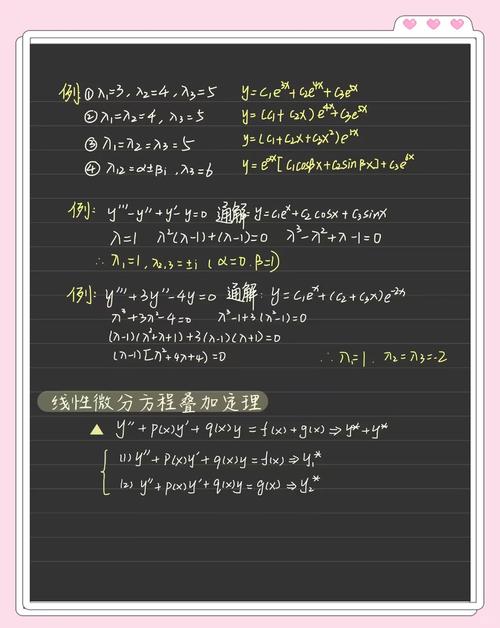 例 ① λ₁=3, λ₂=4, λ₃=5 y=C₁e³ˣ+C₂e⁴ˣ+C₃e⁵ˣ
② λ₁=λ₂=4, λ₃=5 y=(C₁+C₂x)e⁴ˣ+C₃e⁵ˣ
③ λ₁=λ₂=λ₃=5 y=(C₁+C₂x+C₃x²)e
④ λ₁₂=α±βi, λ₃=6 y=e^αx[C₁cosβx+C₂sinβx]+C₃e⁶ˣ
例: y'''-y''+y'-y=0 通解: y=C₁eˣ+C₂cosx+C₃sinx
λ=1 λ²(λ-1)+(λ-1)=0 λ³-λ²+λ-1=0
∴ λ₁=1, λ₂,₃=±i (α=0.β=1)
例: y'''+3y''-4y=0 通解: y=C₁eˣ+(C₂+C₃x)e⁻²ˣ
λ³+3λ²-4=0 λ³-1+3(λ²-1)=0
(λ-1)(λ²+λ+1)+3(λ-1)(λ+1)=0
(λ-1)[λ²+4λ+4)=0 ∴λ₁=1. λ₂=λ₃=-2
线性微分方程叠加定理
▲ y''+p(x)y'+q(x)y=f(x)+g(x)⇒y*+y*
(1) y''+p(x)y'+q(x)y=f(x)⇒y₁*
(2) y''+p(x)y'+q(x)y=g(x)⇒y₂*